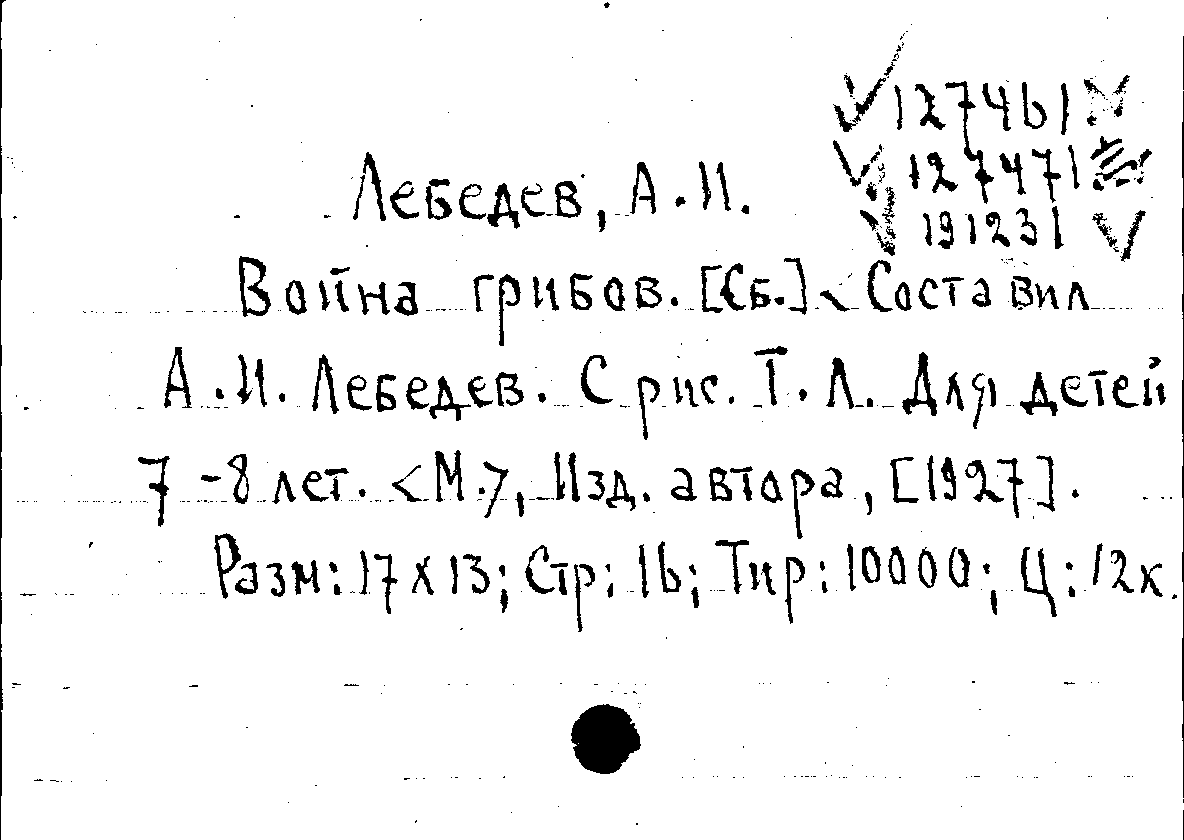 127461
127471
191231
Лебедев, А.И.
Война грибов. [Сб.] <Составил
А.И. Лебедев. С рис. Т.Л. Для детей
7-8 лет. <М.>, Изд. автора, [1927].
Разм: 17х13; Стр: 16; Тир: 10000; Ц: 12к.